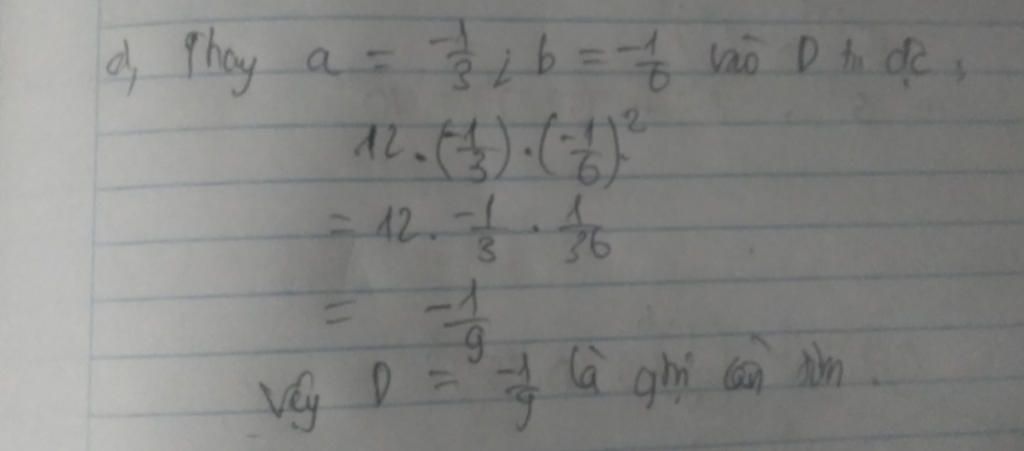 d, Thay a = -1/3 ; b = -1/6 vào D ta đc,
12 . (-1/3) . (-1/6)²
= 12 . -1/3 . 1/36
= -1/9
Vậy D = -1/9 là gtrị cần tìm.